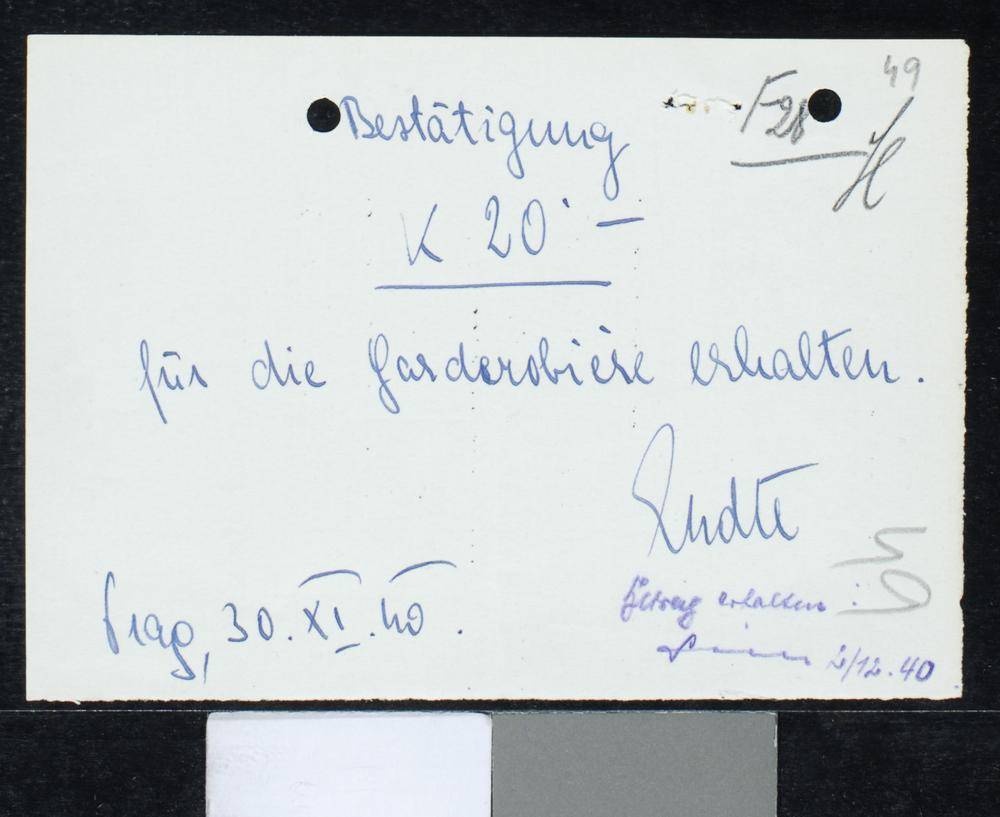 49
F 28
Bestätigung
K 20·–
für die Garderobiere erhalten.
Prag, 30. XI. 40.
Betrag erhalten:
2/12.40